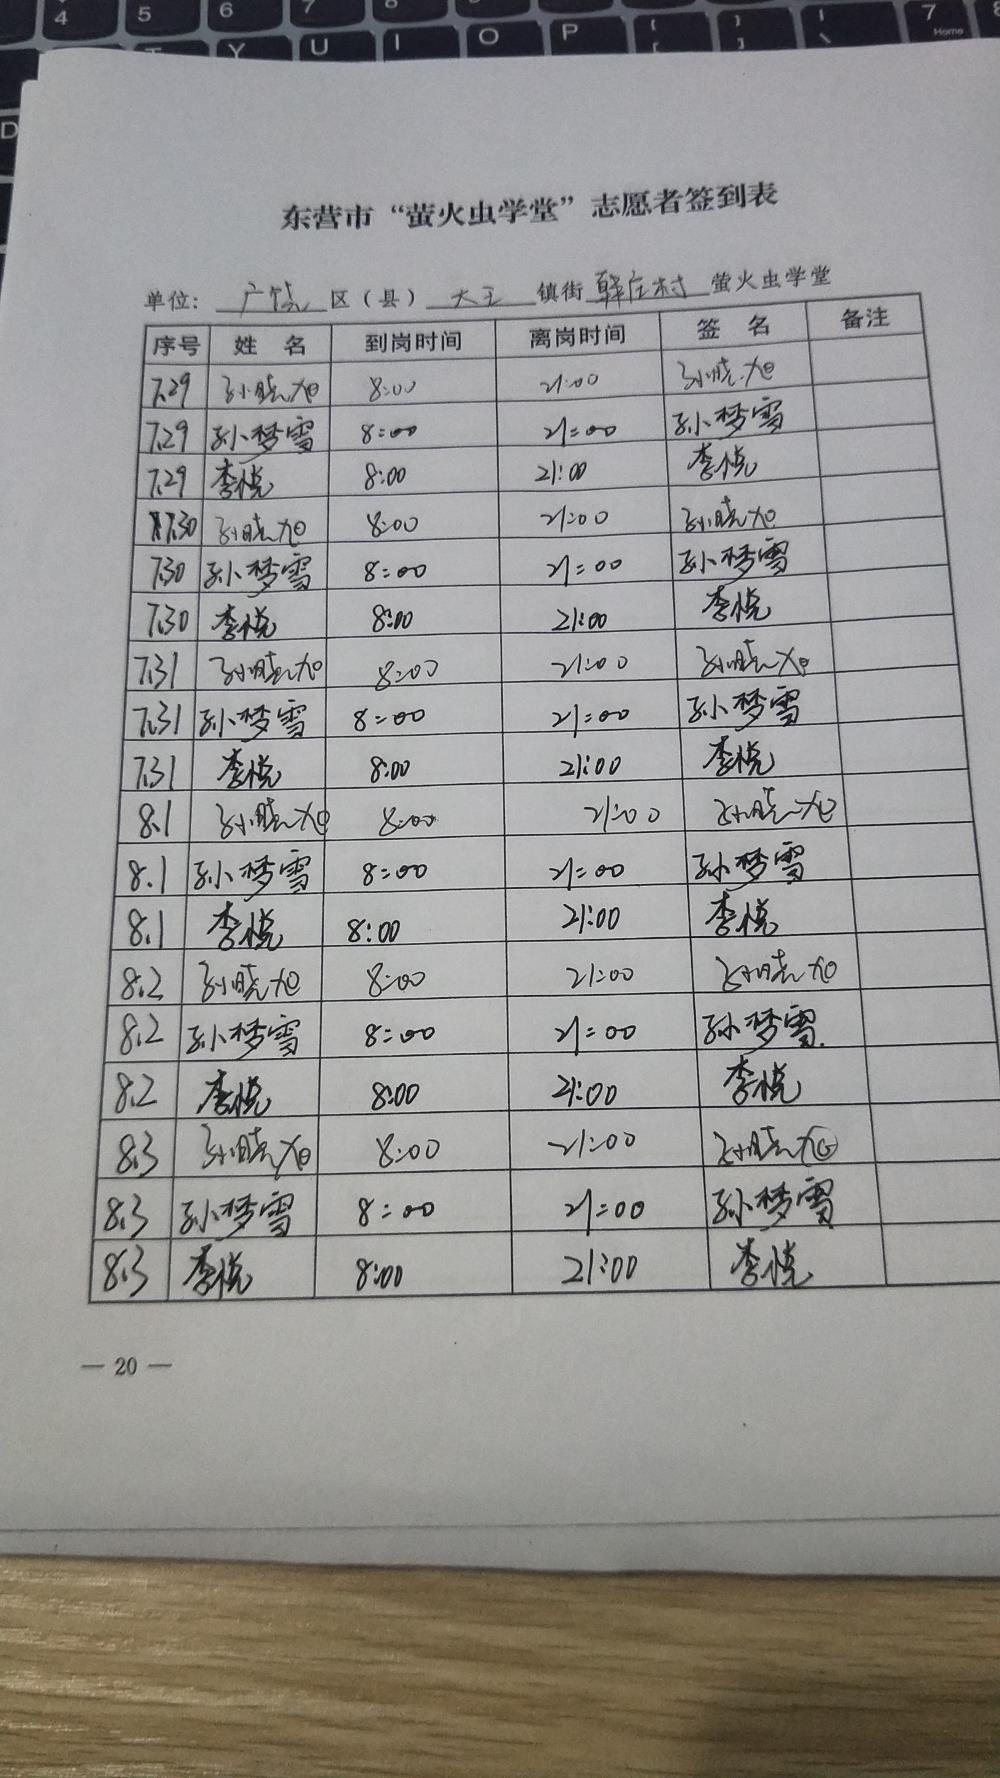 4 5 6 7 8 7 8
Home
T Y U I O P { [ } ] | \
D
东营市“萤火虫学堂”志愿者签到表
单位：广饶区（县）大王镇街韩庄村萤火虫学堂
序号 姓名 到岗时间 离岗时间 签名 备注
7.29 孙晓旭 8:00 21:00 孙晓旭
7.29 孙梦雪 8:00 21:00 孙梦雪
7.29 李悦 8:00 21:00 李悦
7.30 孙晓旭 8:00 21:00 孙晓旭
7.30 孙梦雪 8:00 21:00 孙梦雪
7.30 李悦 8:00 21:00 李悦
7.31 孙晓旭 8:00 21:00 孙晓旭
7.31 孙梦雪 8:00 21:00 孙梦雪
7.31 李悦 8:00 21:00 李悦
8.1 孙晓旭 8:00 21:00 孙晓旭
8.1 孙梦雪 8:00 21:00 孙梦雪
8.1 李悦 8:00 21:00 李悦
8.2 孙晓旭 8:00 21:00 孙晓旭
8.2 孙梦雪 8:00 21:00 孙梦雪
8.2 李悦 8:00 21:00 李悦
8.3 孙晓旭 8:00 21:00 孙晓旭
8.3 孙梦雪 8:00 21:00 孙梦雪
8.3 李悦 8:00 21:00 李悦
— 20 —